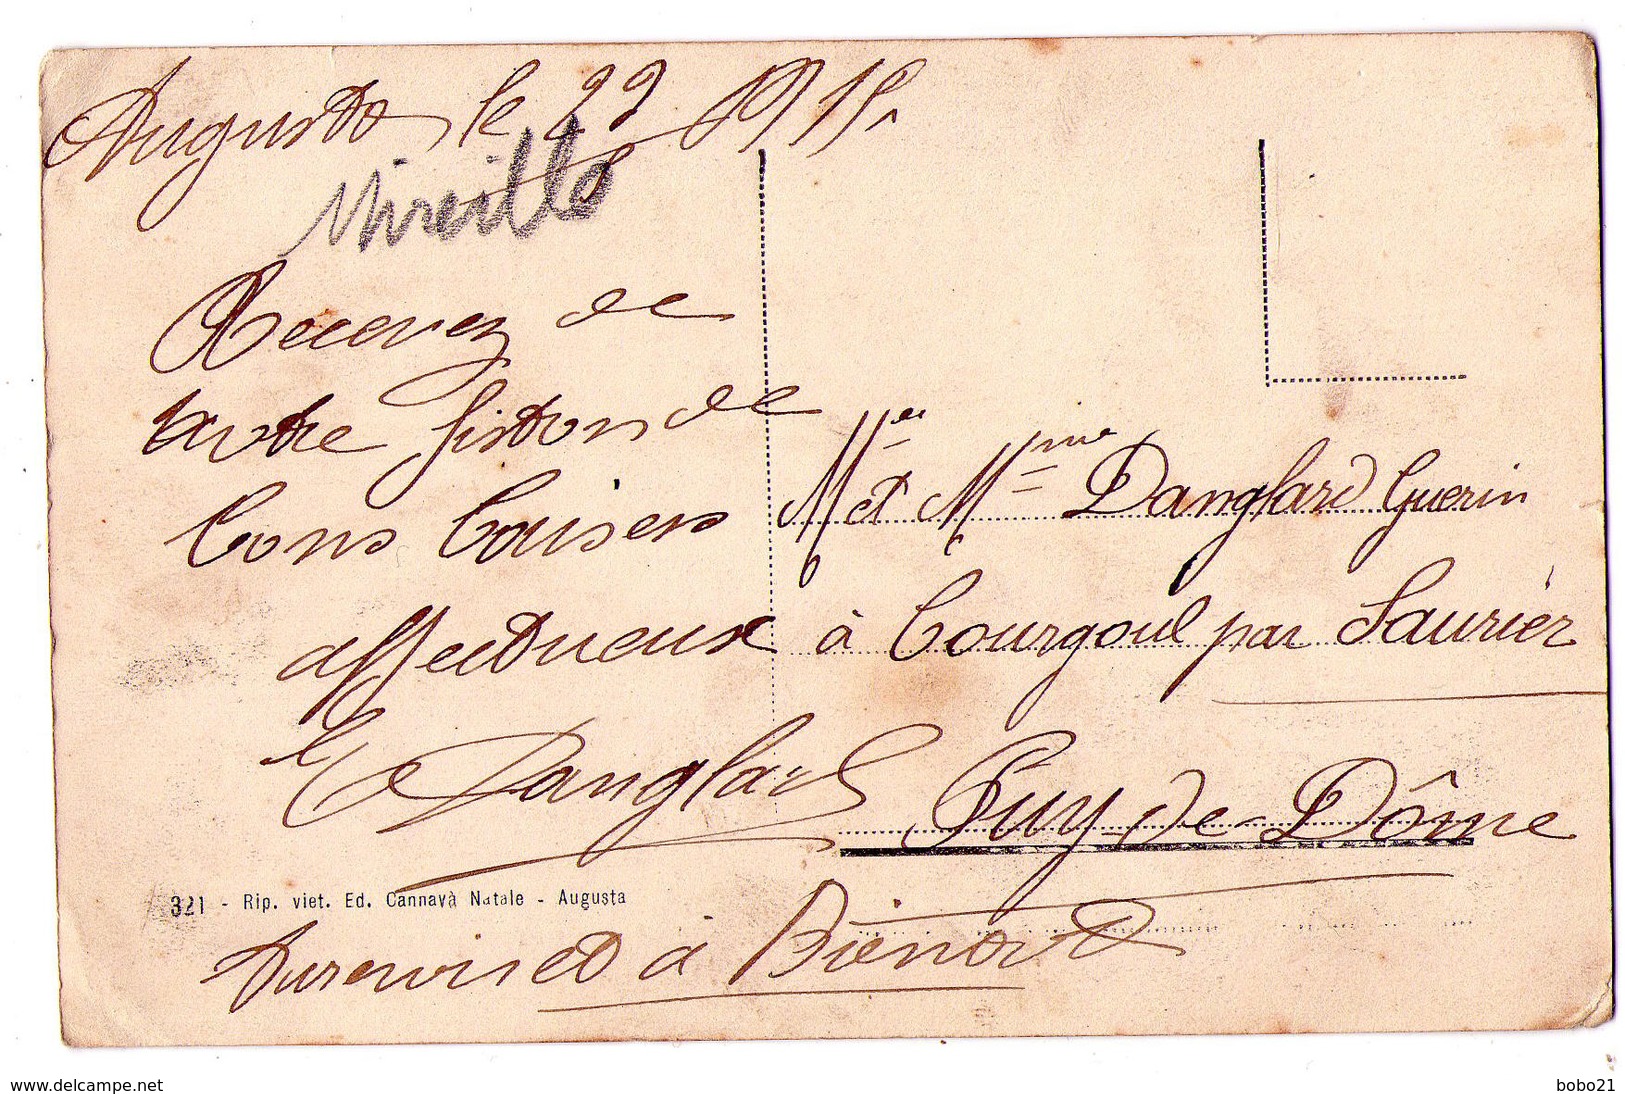 Augusta le 29 1915
Mireille
Recevez de
votre fiston de
bons baisers
affectueux
E Danglard
Mr et Mme Danglard Guerin
à Courgoul par Saurier
Puy-de-Dôme
321 - Rip. viet. Ed. Cannavà Natale - Augusta
Aurevoir et à Bientot
www.delcampe.net
bobo21